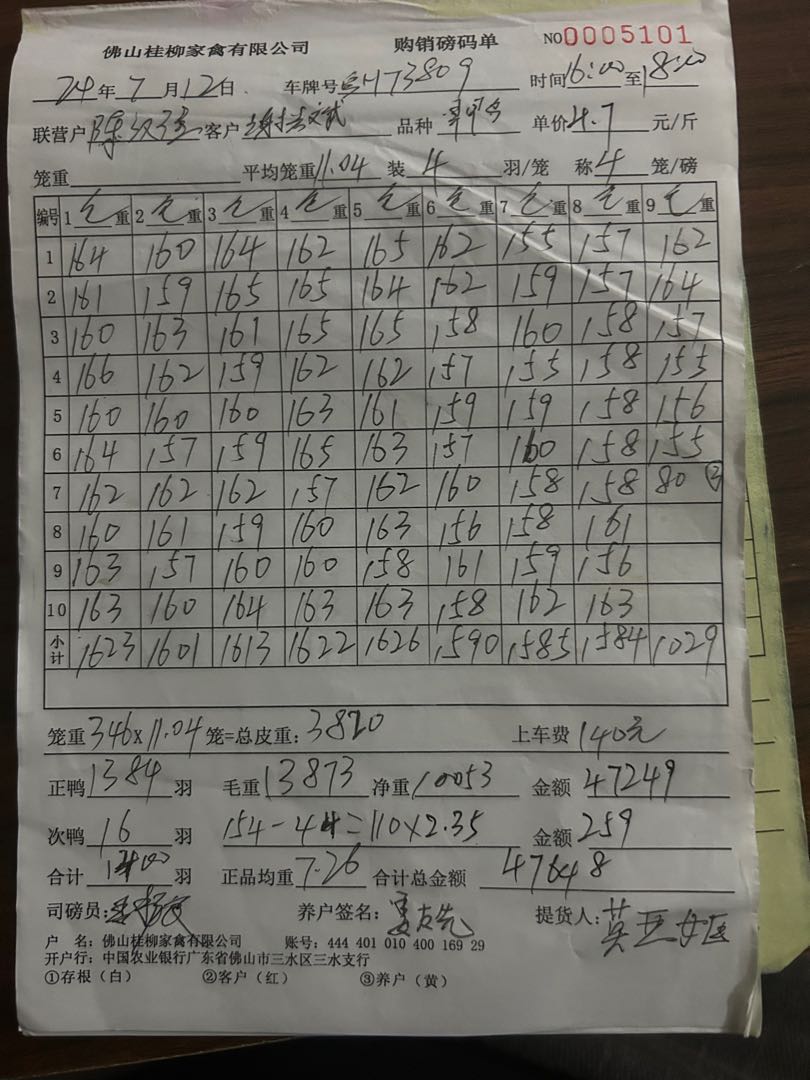 佛山桂柳家禽有限公司 购销磅码单 NO0005101
24年7月12日 车牌号 H73809 时间16:00至18:00
联营户 客户 品种 单价4.7元/斤
笼重 平均笼重11.04 装4羽/笼 称4笼/磅
编号 1毛重 2毛重 3毛重 4毛重 5毛重 6毛重 7毛重 8毛重 9毛重
1 164 160 164 162 165 162 155 157 162
2 161 159 165 165 164 162 159 157 164
3 160 163 161 165 165 158 160 158 157
4 166 162 159 162 162 157 155 158 155
5 160 160 160 163 161 159 159 158 156
6 164 157 159 165 163 157 160 158 155
7 162 162 162 157 162 160 158 158 80 ③
8 160 161 159 160 163 156 158 161
9 163 157 160 160 158 161 159 156
10 163 160 164 163 163 158 162 163
小计 1623 1601 1613 1622 1626 1590 1585 1584 1029
笼重346×11.04笼=总皮重:3820 上车费140元
正鸭1384羽 毛重13873 净重10053 金额47249
次鸭16羽 154-44=110×2.35 金额259
合计1400羽 正品均重7.26 合计总金额47648
司磅员: 养户签名: 提货人:
户 名:佛山桂柳家禽有限公司 账号:444 401 010 400 169 29
开户行:中国农业银行广东省佛山市三水区三水支行
①存根(白) ②客户(红) ③养户(黄)